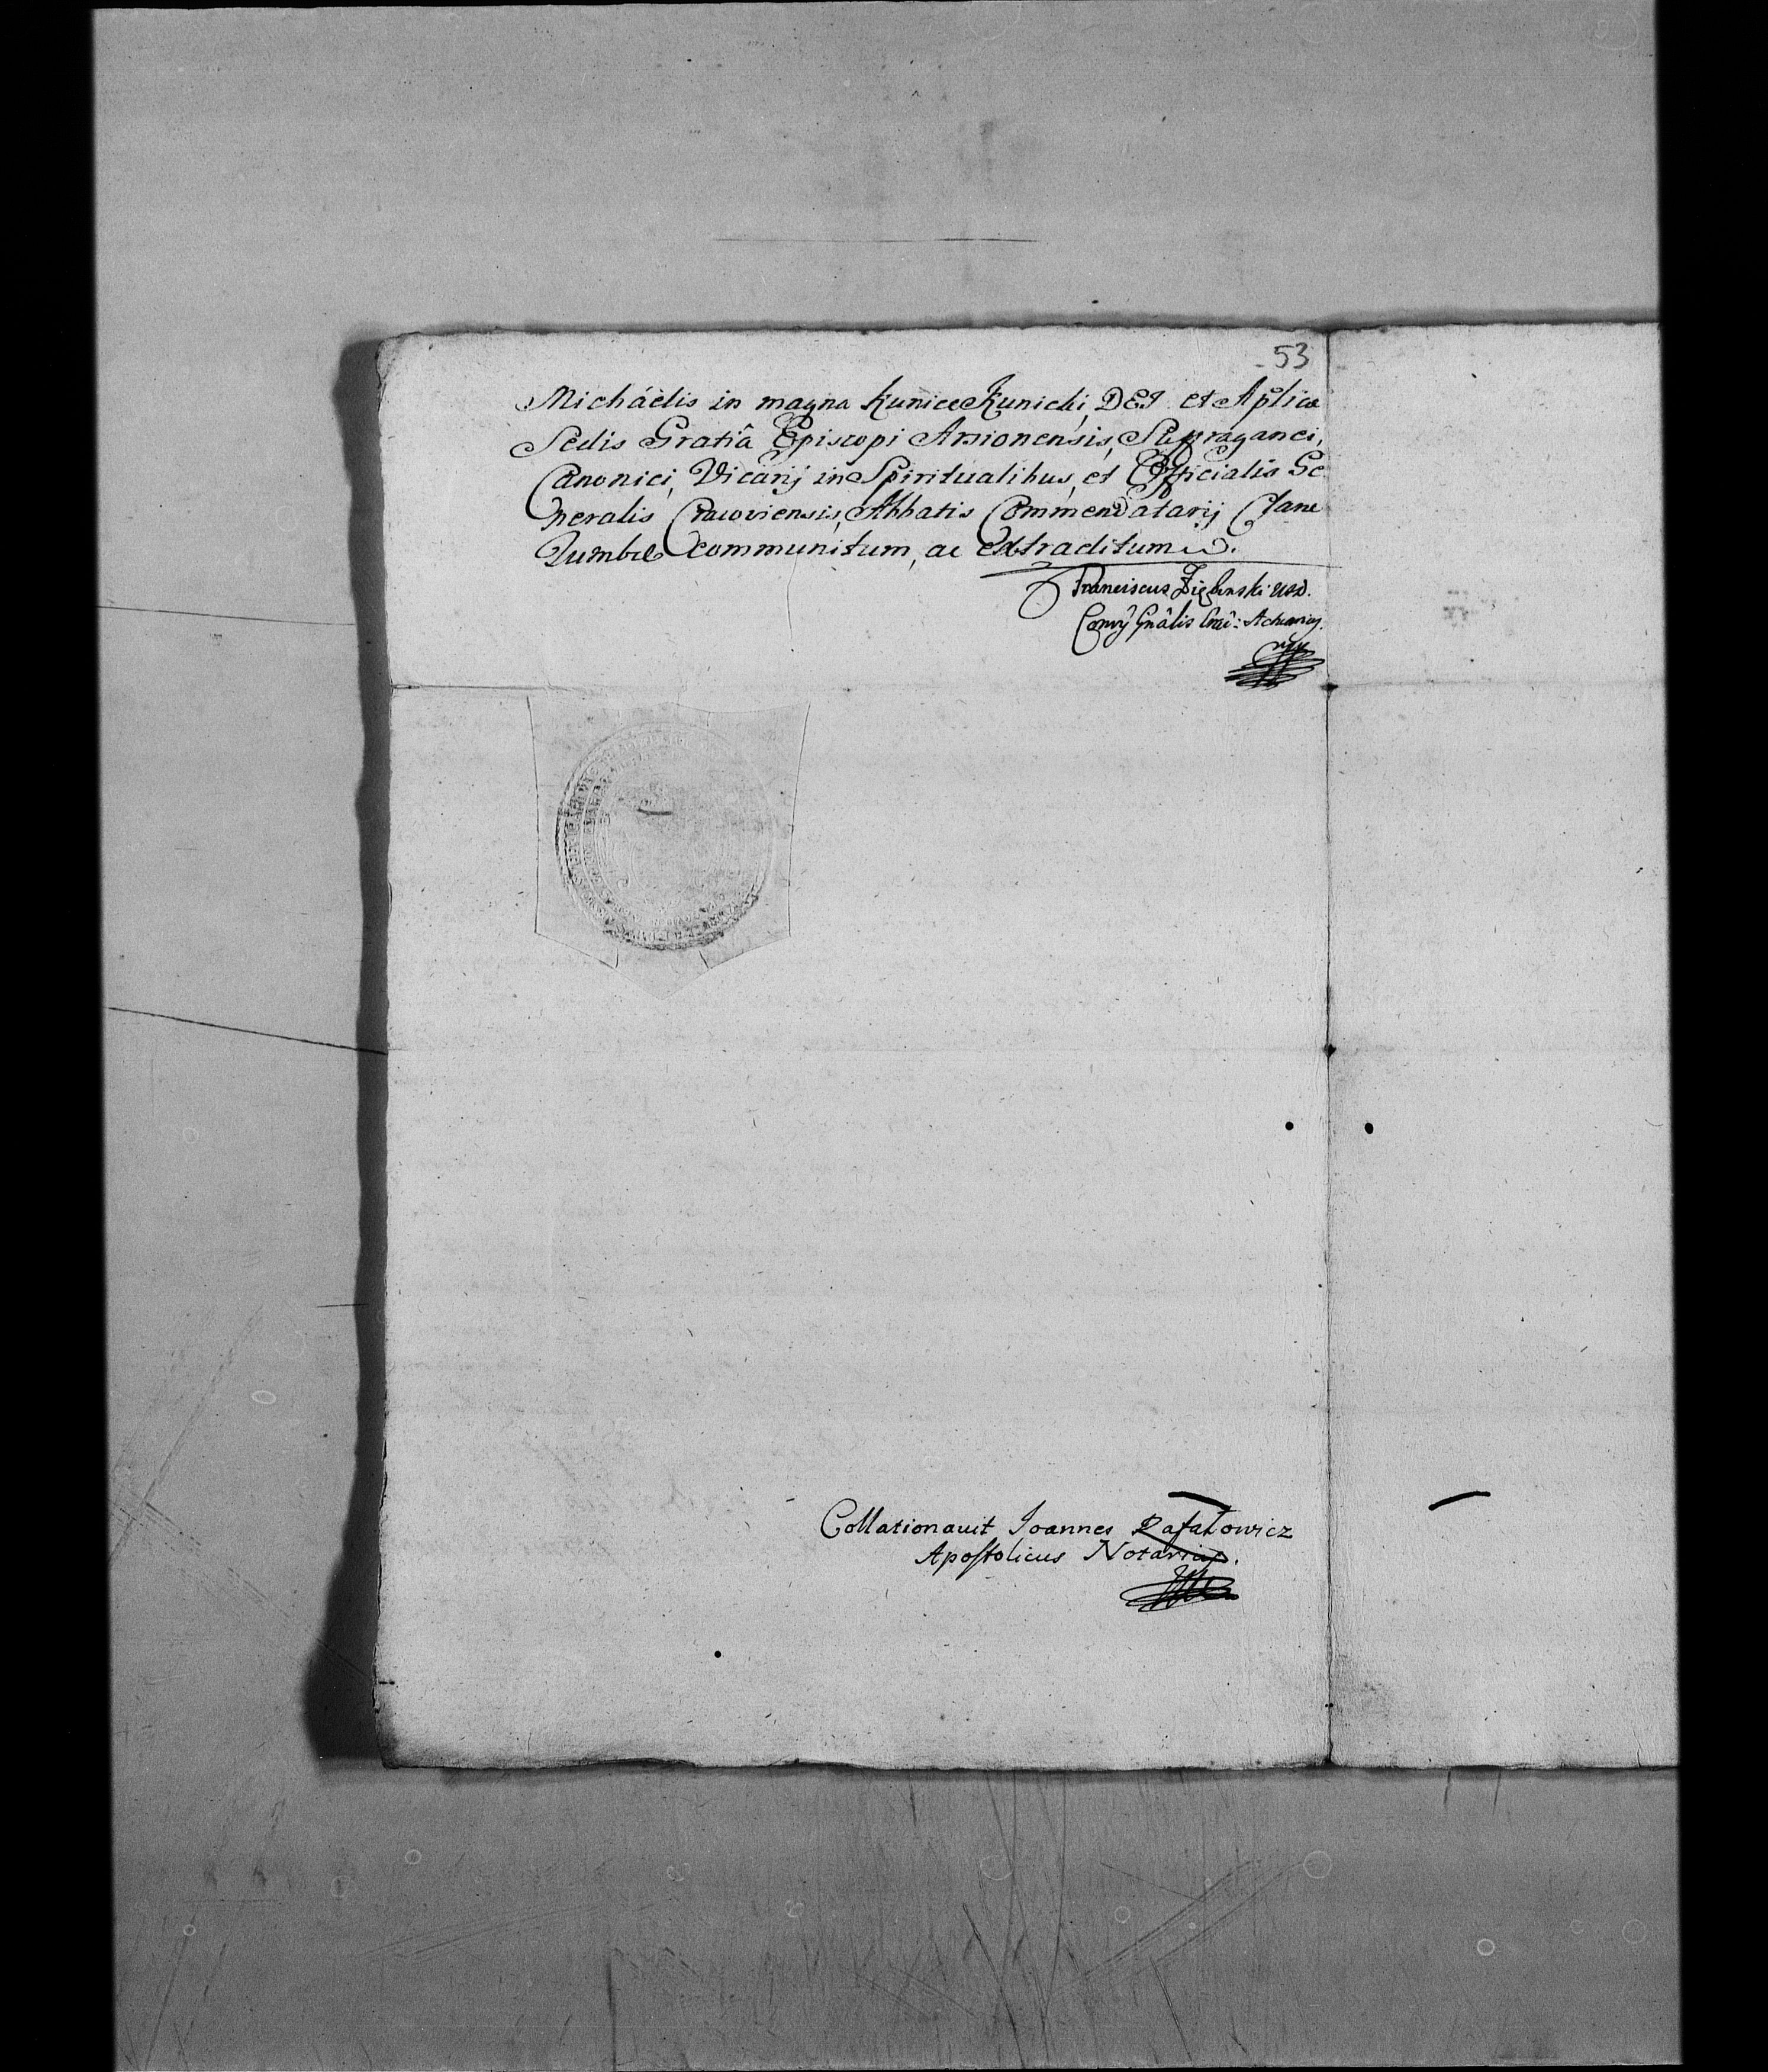 53
Micháèlis in magna Kunice Kunicki, DEI et Aplicæ
Sedis Gratiâ Episcopi Arsionensis, Suffraganei,
Canonici, Vicarij in Spiritualibus, et Officialis Ge
neralis Cracoviensis, Abbatis Commendatarij Claræ
Tumbæ communitum, ac extraditum.
Franciscus
Conrÿ Gnâlis Actuarius
Collationauit Joannes Rafałowicz
Apostolicus Notarius.